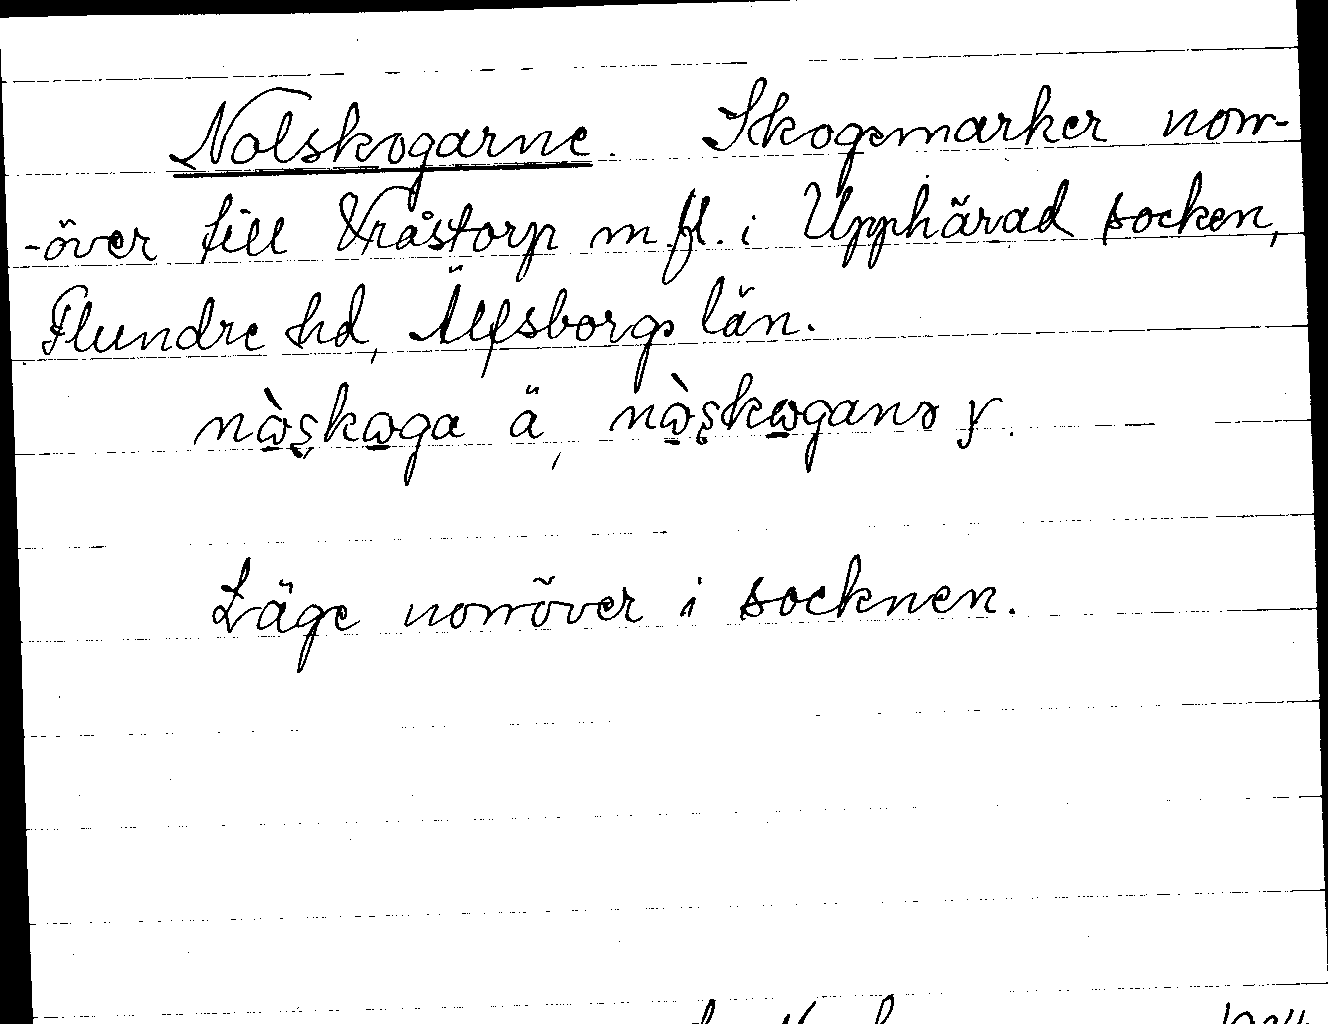 Nolskogarne. Skogsmarker norr-
-över till Vråstorp m fl. i Upphärad socken,
Flundre hd, Älfsborgs län.
nꞷ̀ʂkꞷga ä, nꞷ̀ʂkꞷganə y.
Läge norröver i socknen.